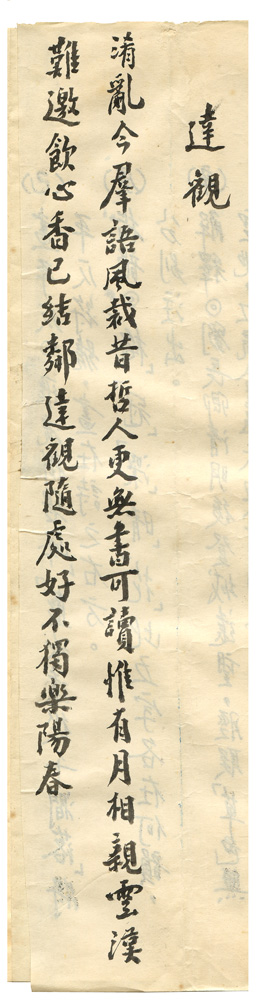 達観
淆亂今羣語風裁昔哲人更無書可讀惟有月相親雲漢
難邀飲心香已結鄰達観隨處好不獨樂陽春